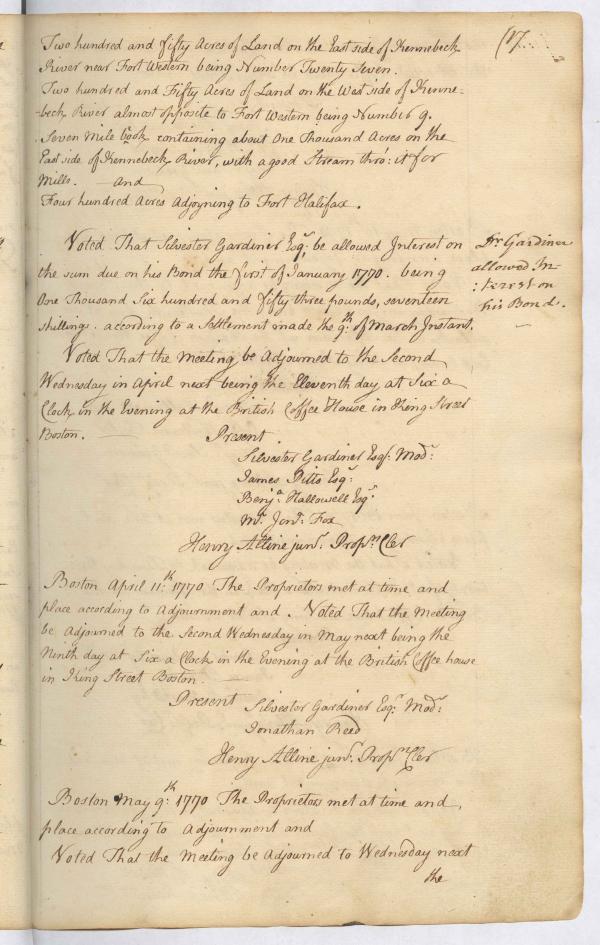 (17
Two hundred and fifty Acres of Land on the East side of Kennebeck
River near Fort Western being Number Twenty Seven.
Two hundred and Fifty Acres of Land on the West side of Kenne-
-beck River almost opposite to Fort Western being Number 9.
Seven Mile Brook containing about One Thousand Acres on the
East side of Kennebeck River, with a good Stream thro': it for
Mills. — And
Four hundred Acres Adjoyning to Fort Halifax.
Voted That Silvester Gardiner Esqr: be allowed Interest on
the sum due on his Bond the first of January 1770. being
One Thousand Six hundred and fifty three pounds, seventeen
shillings. according to a Settlement made the 9th: of March Instant.
Dr. Gardiner
allowed In-
:terest on
his Bond.
Voted That the Meeting be Adjourned to the Second
Wednesday in April next being the Eleventh day at Six a
Clock in the Evening at the British Coffee House in King Street
Boston. —
Present
Silvester Gardiner Esqr: Modr:
James Pitts Esqr:
Benja. Hallowell Esqr:
Mr. Jonn. Fox
Henry Alline junr. Proprs. Cler
Boston April 11th: 1770 The Proprietors met at time and
place according to Adjournment and. Voted That the Meeting
be Adjourned to the Second Wednesday in May next being the
Ninth day at Six a Clock in the Evening at the British Coffee house
in King Street Boston. —
Present Silvester Gardiner Esqr: Modr:
Jonathan Reed
Henry Alline junr. Proprs. Cler
Boston May 9th: 1770 The Proprietors met at time and,
place according to Adjournment and
Voted That the Meeting be Adjourned to Wednesday next
the